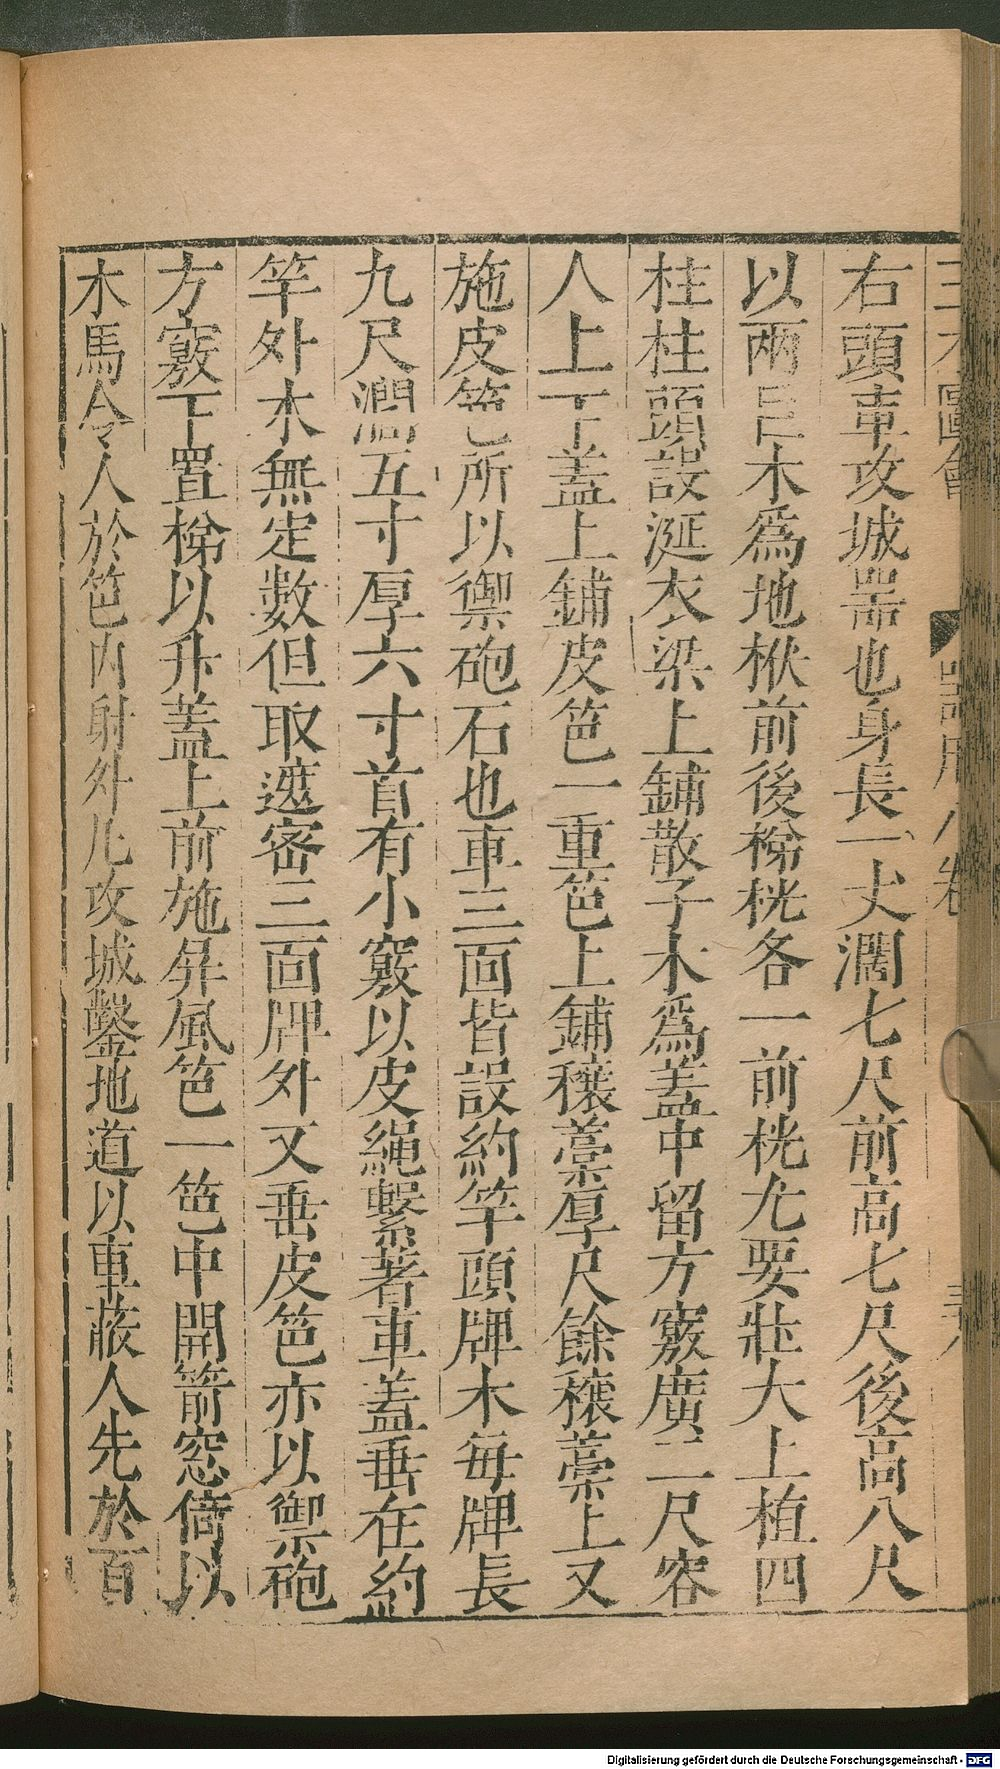 三才圖會
器用八卷
右頭車攻城噐也身長一丈濶七尺前高七尺後高八尺
以兩巨木爲地栿前後梯桄各一前桄尤要壯大上植四
柱柱頭設涎衣梁上鋪散子木爲蓋中留方竅廣二尺容
人上下蓋上鋪皮笆一重笆上鋪穰藁厚尺餘穰藁上又
施皮笆所以禦砲石也車三面皆設約竿頭牌木每牌長
九尺濶五寸厚六寸首有小竅以皮繩繫著車蓋垂在約
竿外木無定數但取遮密三面牌外又垂皮笆亦以禦砲
方竅下置梯以升蓋上前施屏風笆一笆中開箭窓倚以
木馬令人於笆內射外凡攻城鑿地道以車蔽人先於百
Digitalisierung gefördert durch die Deutsche Forschungsgemeinschaft - DFG